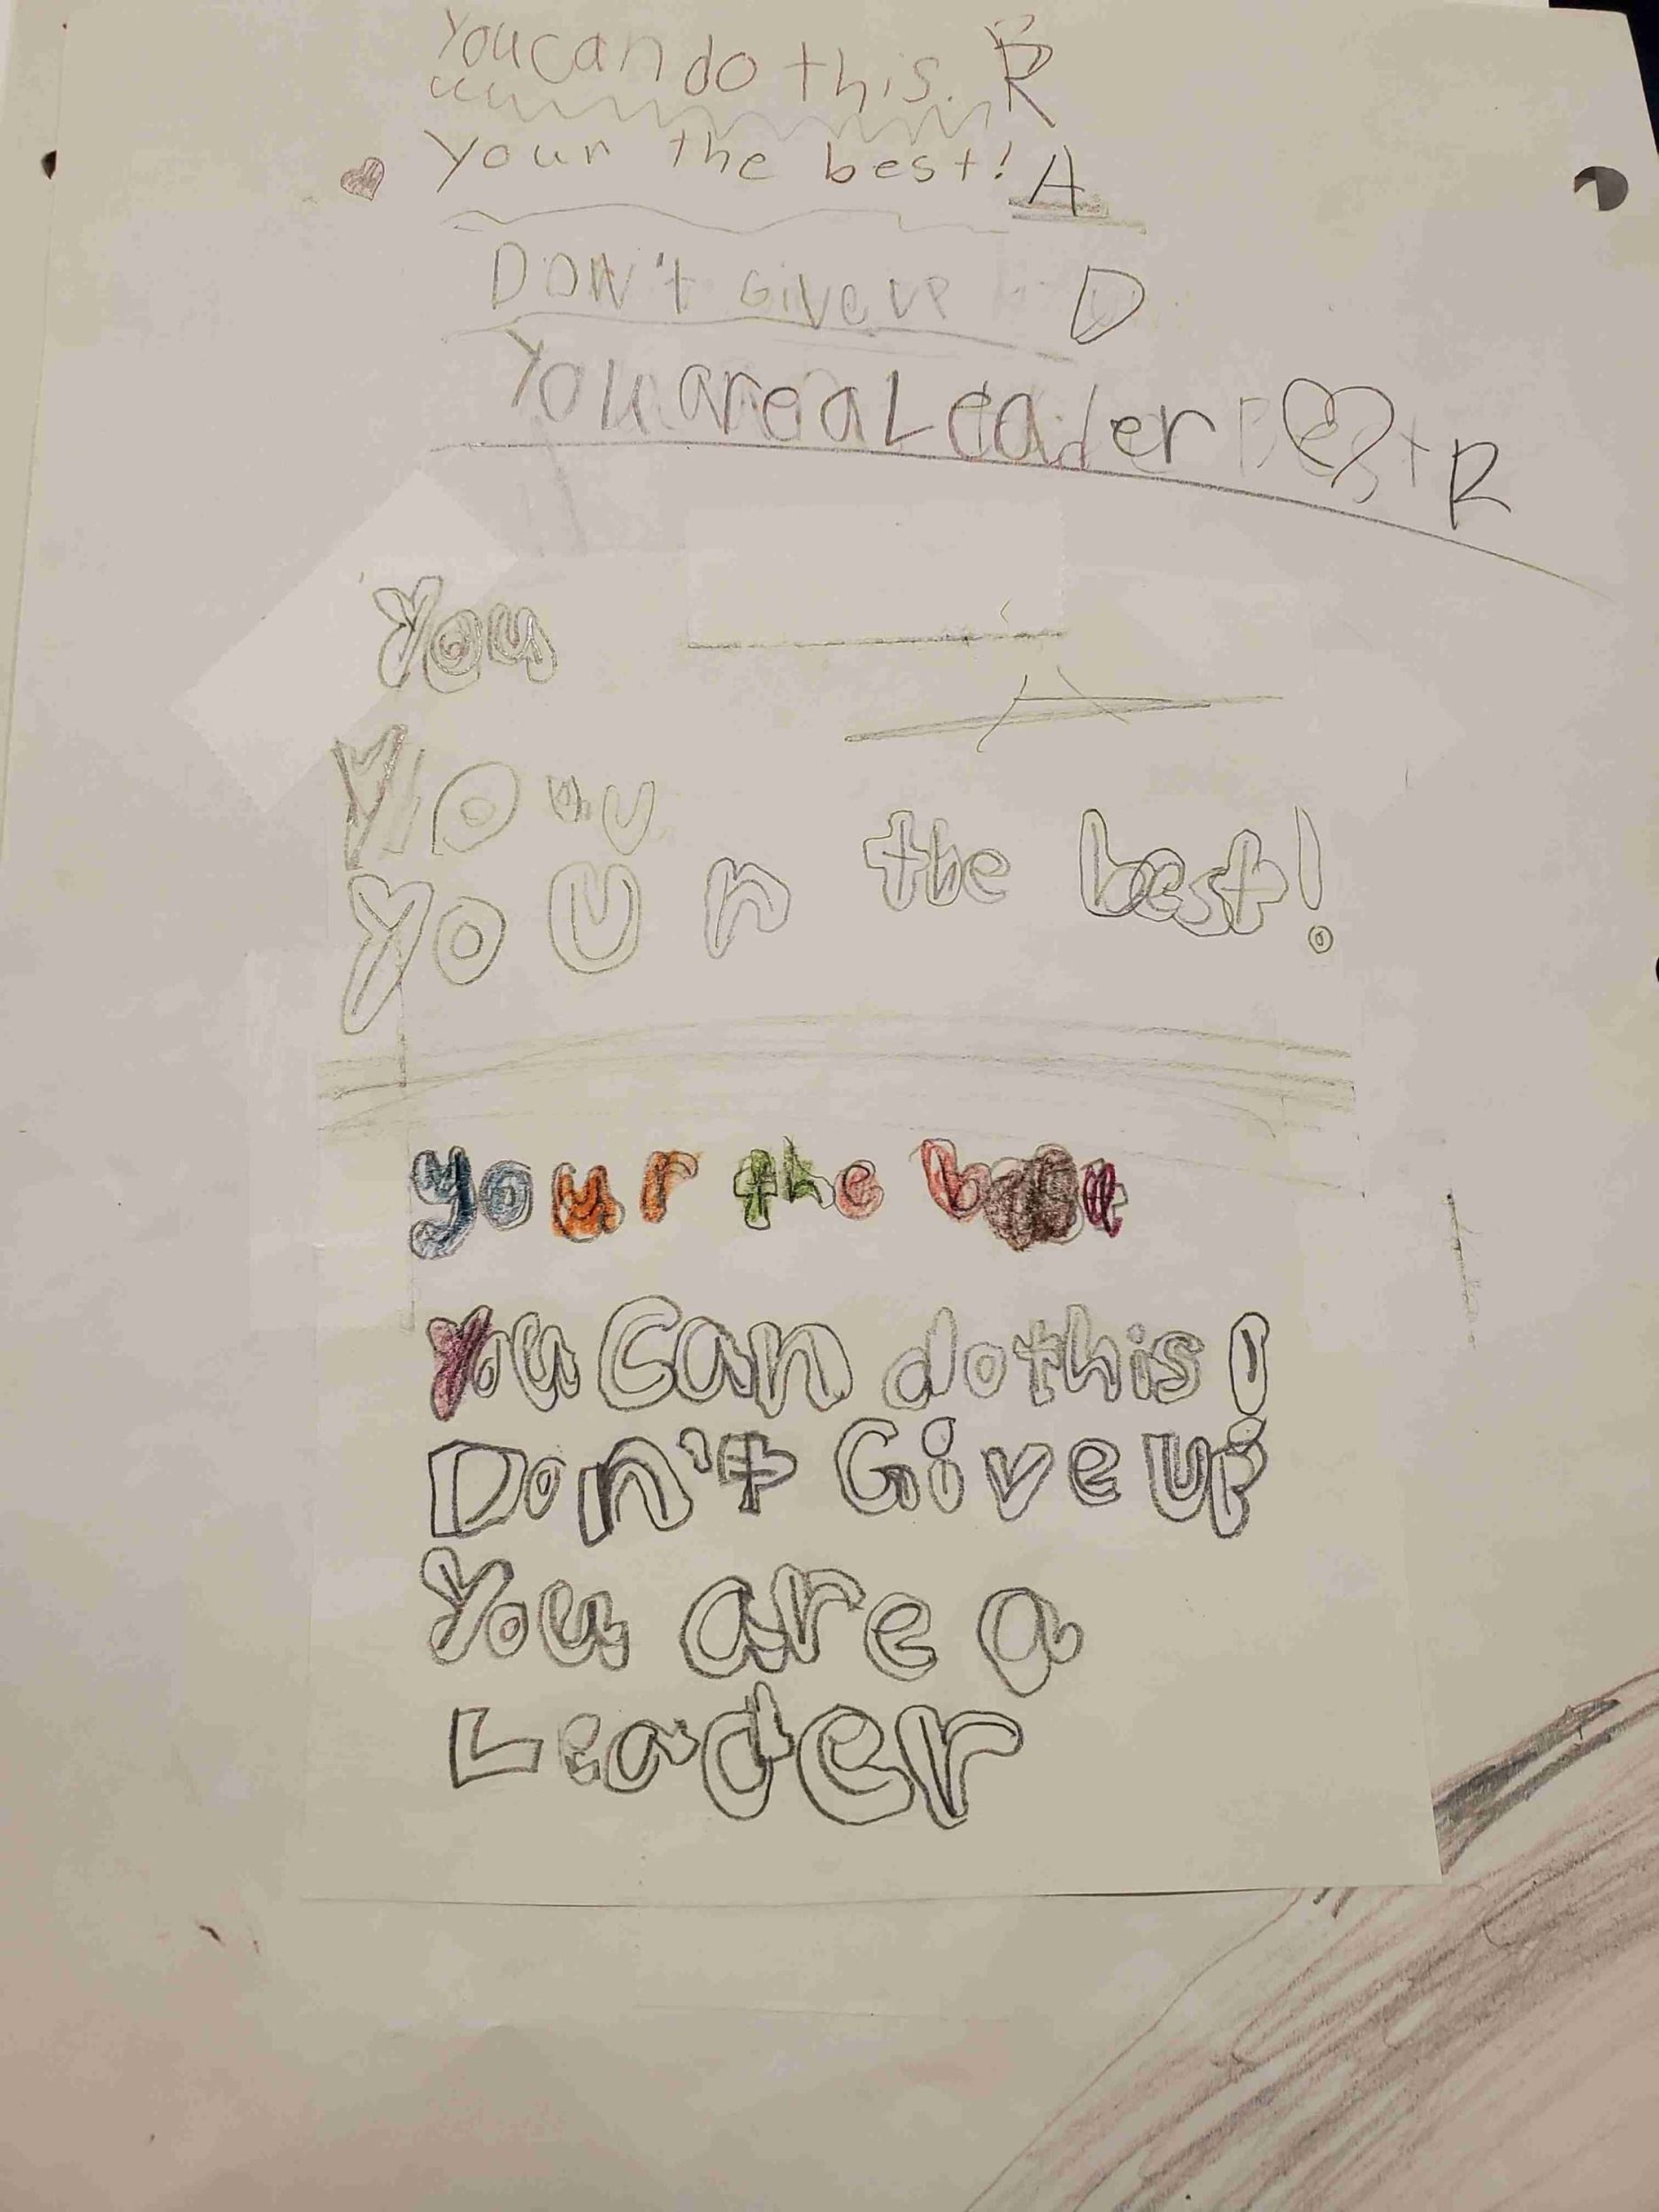 You can do this. R
Your the best! A
DON't Give UP D
You are a Leader Best R
You
You
Your the best!
your the best
You Can do this!
Don't Give up
You are a
Leader